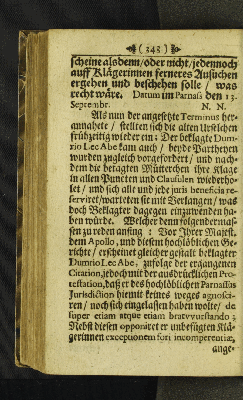 (348)
scheine alsdenn/ oder nicht/ jedennoch
auff Klägerinnen ferneres Ansuchen
ergehen und beschehen solle/ was
recht wäre. Datum im Parnaß den 13.
Septembr. N. N.
Als nun der angesetzte Terminus her-
annahete/ stellten sich die alten Urselchen
frühzeitig wieder ein: der beklagte Dum-
rio Lec Abe kam auch/ beyde Partheyen
wurden zugleich vorgefordert/ und nach-
dem die besagten Mütterchen ihre Klage
in allen Puncten und Clausulen wiederho-
let/ und sich alle und jede juris beneficia re-
serviret/ warteten sie mit Verlangen/ was
doch Beklagter dagegen einzuwenden ha-
ben würde. Welcher denn folgendermas-
sen zu reden anfing: Vor Ihrer Majest.
dem Apollo, und diesem hochlöblichen Ge-
richte/ erscheinet gleicher gestalt beklagter
Dumrio Lec Abe, zufolge der ergangenen
Citation, jedoch mit der ausdrücklichen Pro-
testation, daß er des hochlöblichen Parnassus
Jurisdiction hiemit keines weges agnosci-
ren/ noch sich eingelassen haben wolte/ de
super etiam atque etiam
Nebst diesen opponiret er unbefugten Klä-
gerinnen exceptionem fori incompetentiæ,
ange-